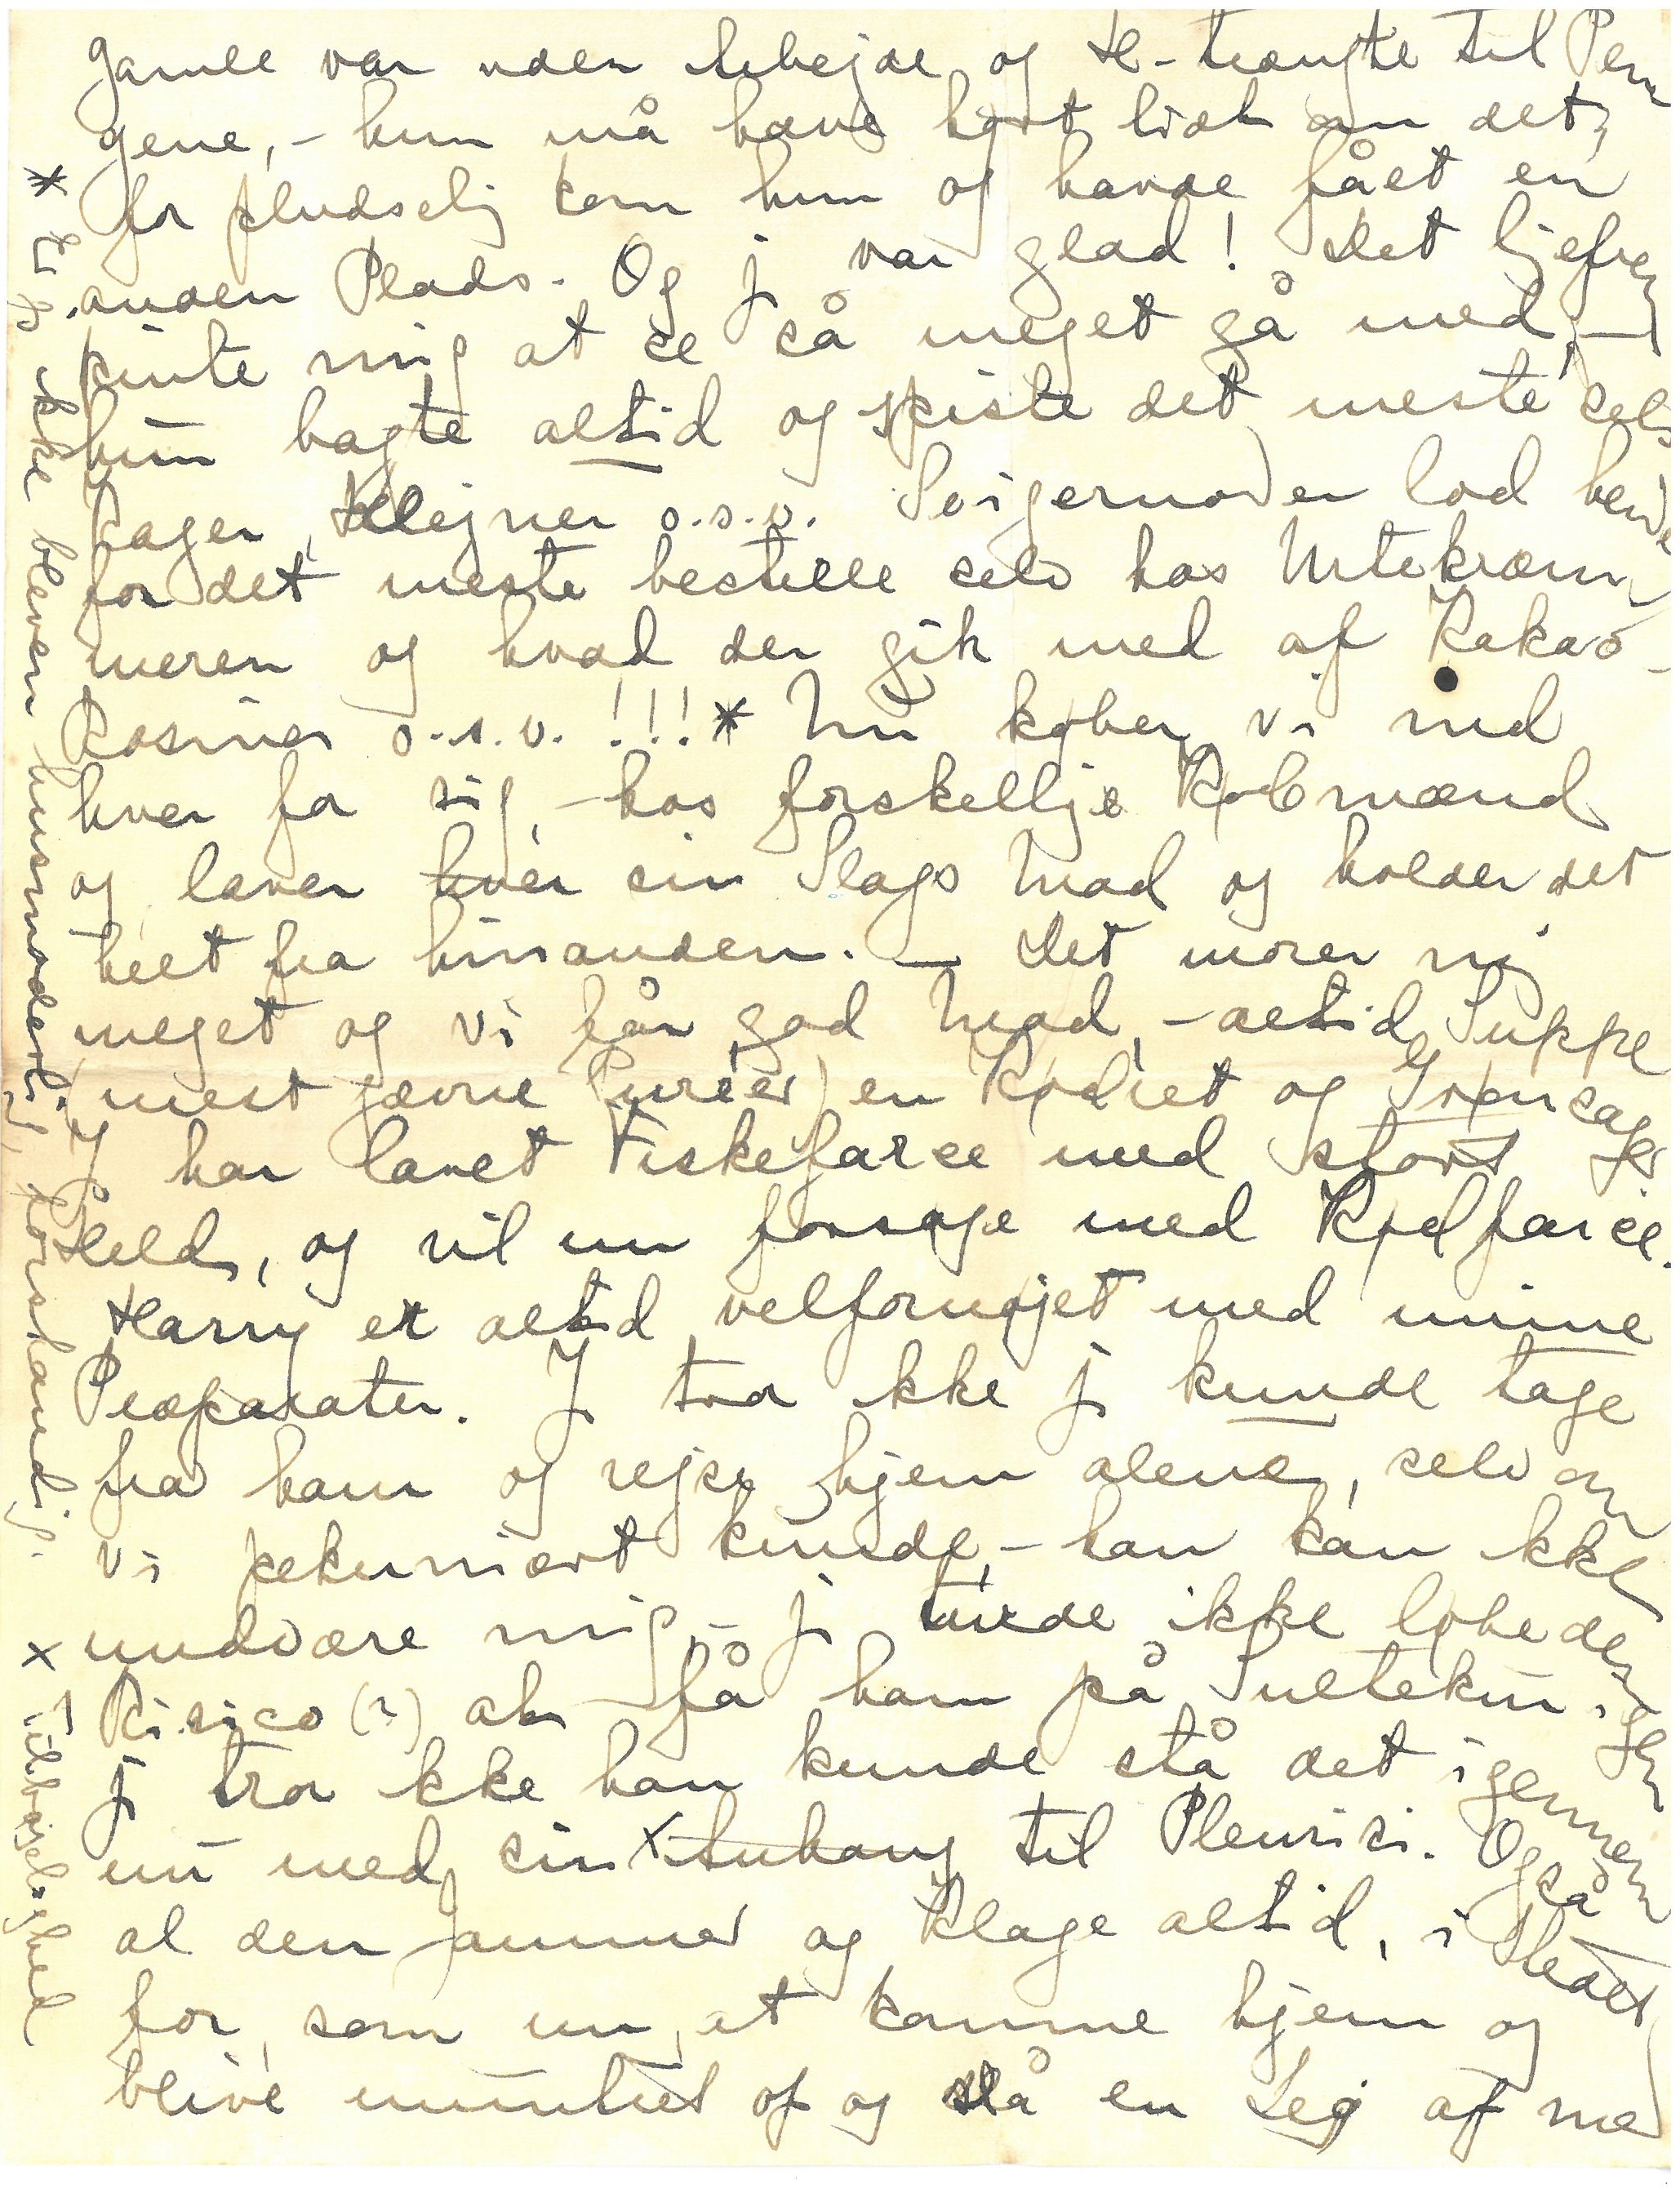 gamle var uden Arbejde og H- trængte til Pen
gene, - hun må have hørt lidt om det,
for pludselig kom hun og havde fået en
anden Plads. Og j var glad! Det ligefrem
pinte mig at se så meget gå med, -
hun bagte altid og spiste det meste selv
Kager, Klejner o.s.v. Svigermoder lod hende
for det meste bestille selv hos Urtekræm
meren og hvad der gik med af Kakao -
Rosiner o.s.v. !!! * Nu køber vi ind
hver for sig, - hos forskellige Købmænd
og laver hver sin Slags Mad og holder det
helt fra hinanden. - Det morer mig
meget og vi får god Mad, - altid Suppe
(mest jævne Puréer) en Kødret og Grønsager
J har lavet Fiskefarce med stort
Held, og vil nu forsøge med Kødfarce.
Harry er altid velfornøjet med mine
Præparater. J tror ikke j kunde tage
fra ham og rejse hjem alene, selv om
vi pekuniært kunde, - han kan ikke
undvære mig, - j turde ikke løbe den
Risico (?) at få ham på Sultekur.
j tror ikke han kunde stå det igennem
nu med sin x Anhang til Pleurisi. Også
al den Jammer og Klage altid, i Stedet
for, som nu, at komme hjem og
blive muntret op og slå en Leg af med
* Er j ikke bleven husmoderlig, forstandig.
x Tilbøjelighed